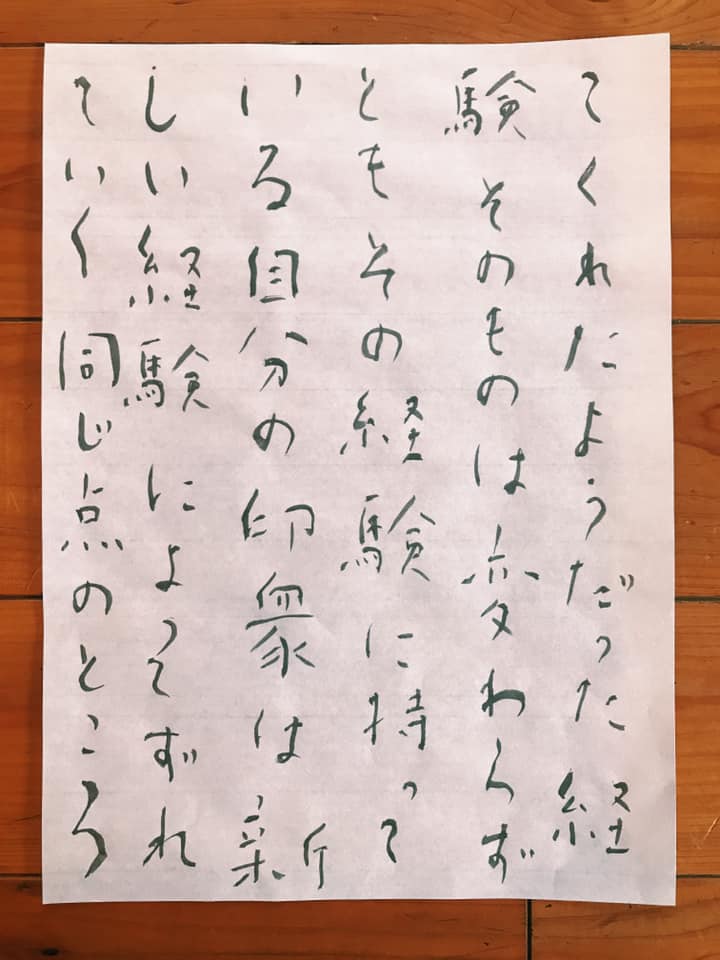 てくれたようだった経
験そのものは変わらず
ともその経験に持って
いる自分の印象は新
しい経験によってずれ
ていく同じ点のところ